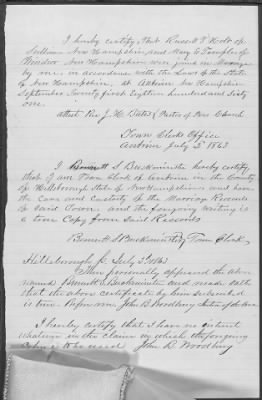 I hereby certify, that Russell T Holt of
Sullivan New Hampshire and Mary E Temple of
Windsor New Hampshire were joined in Marriage
by me in accordance with the Laws of the State
of New Hampshire, at Antrim New Hampshire
September Twenty first Eighteen hundred and Sixty
one.
Attest Rev J. H. Bates Pastor of Pres Church
Town Clerks Office
Antrim July 3d 1863
I Bennett S Buckminster hereby certify
that I am Town Clerk of Antrim in the County
of Hillsborough State of New Hampshire and have
the Care and Custody of the Marriage Records
of Said Town, and the foregoing writing is
a true Copy from Said Records
Bennett S Buckminster Town Clerk
Hillsborough ss July 3d 1863
Then personally appeared the above
named Bennett S Buckminster and made oath
that the above certificate by him subscribed
is true. Before me John B Woodbury Justice of the Peace
I hereby certify that I have no interest
whatever in the claim in which the foregoing
Copy is to be used John B Woodbury